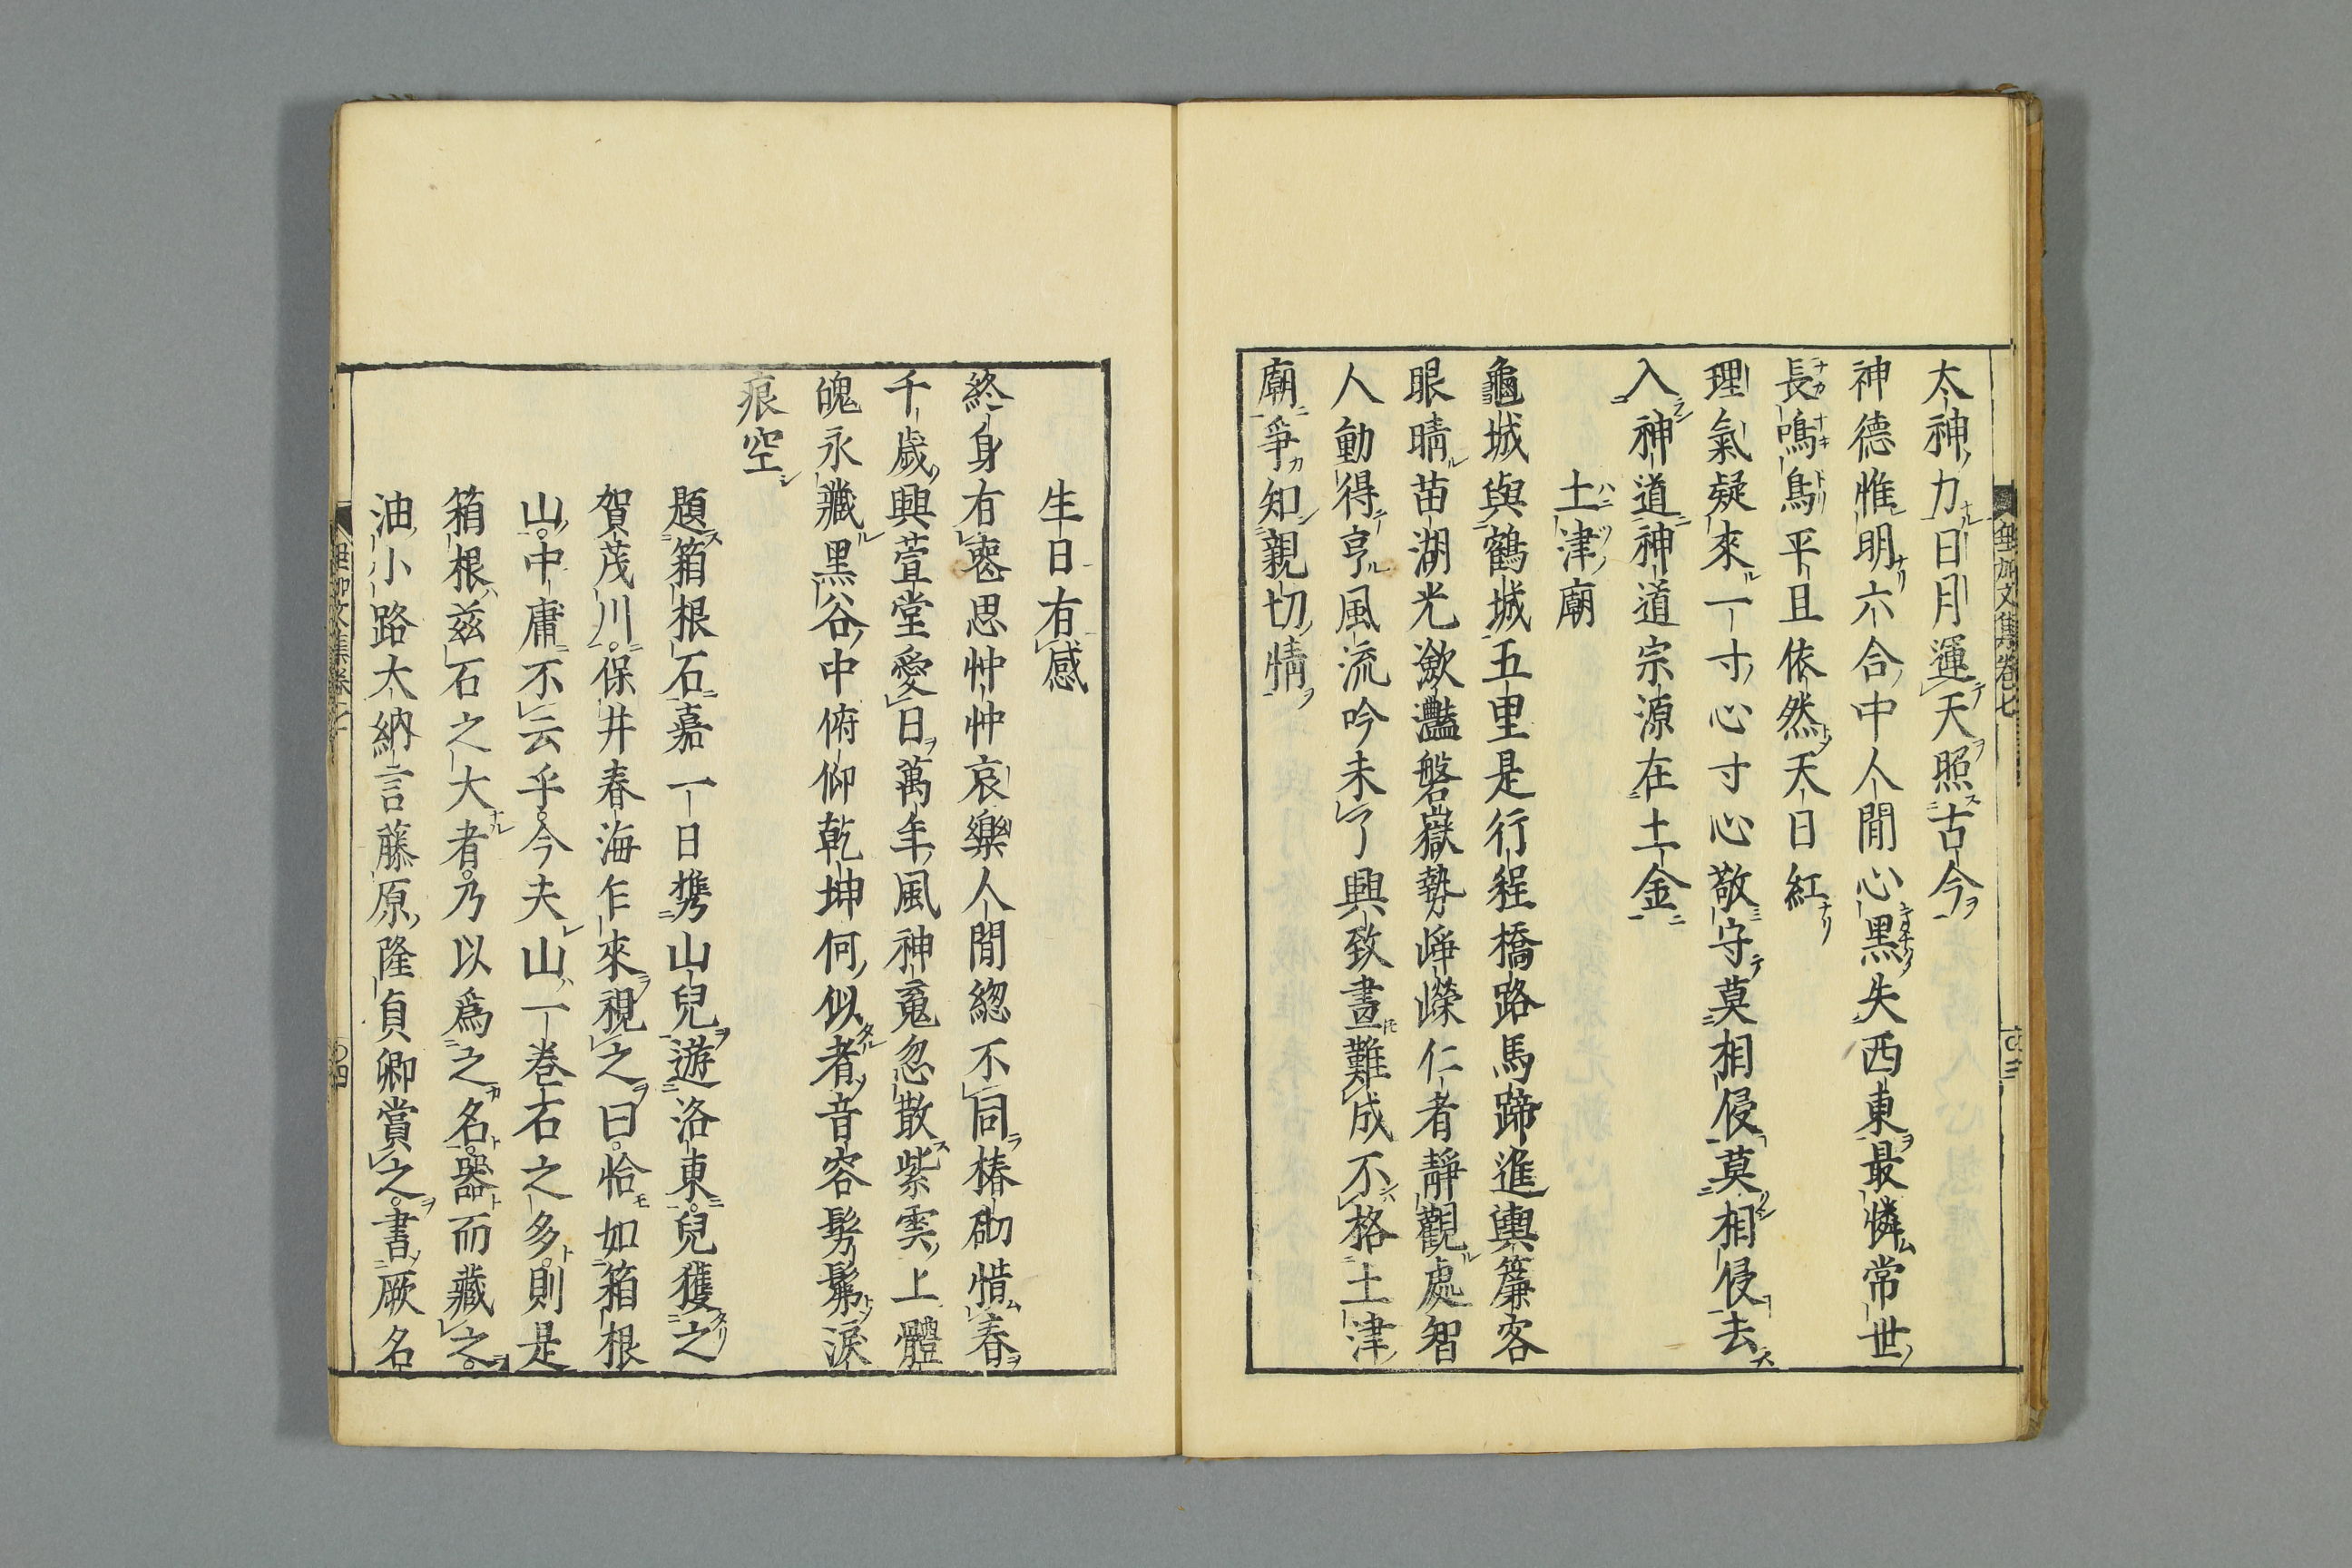 太神力日月運天照古今
神德惟明六合中人間心黑失西東最憐常世
長鳴鳥平旦依然天日紅
理氣凝來一寸心寸心敬守莫相侵莫相侵去
入神道神道宗源在土金
土津廟
龜城與鶴城五里是行程橋路馬蹄進輿簾客
眼晴苗湖光瀲灩磐嶽勢崢嶸仁者靜觀處智
人動得亨風流吟未了興致畫難成不格土津
廟爭知親切情
生日有感
終身有喪思忡忡哀樂人間総不同椿砌惜春
千歲興萱堂愛日萬年風神䰟忽散紫雲上體
魄永藏黑谷中俯仰乾坤何似者音容髣髴淚
痕空
題箱根石嘉一日携山兒遊洛東兒獲之
賀茂川保井春海乍來視之曰恰如箱根
山中庸不云乎今夫山一巻石之多則是
箱根茲石之大者乃以爲之名器而藏之
油小路大納言藤原隆貞卿賞之書厥名